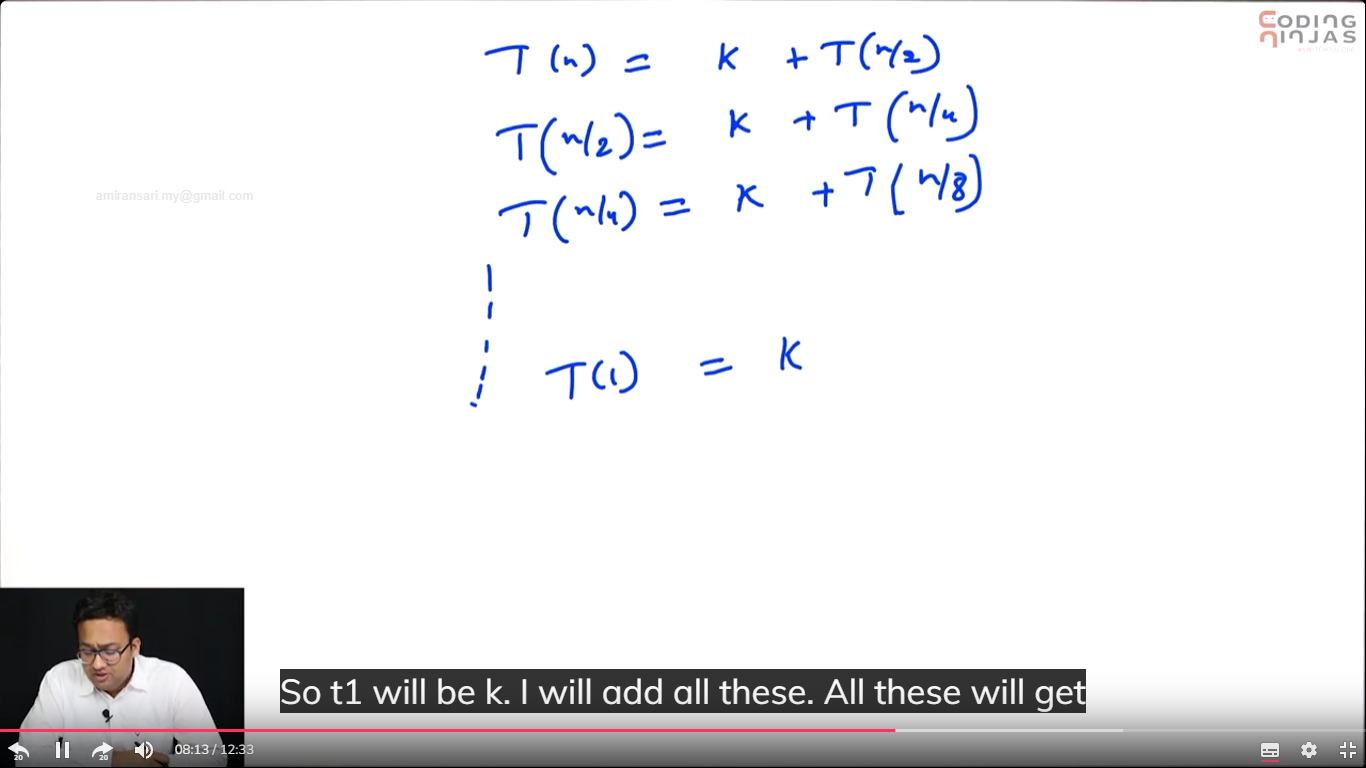 CODING
NINJAS
T(n) = K + T(n/2)
T(n/2) = K + T(n/4)
T(n/4) = K + T(n/8)
amiransari.my@gmail.com
T(1) = K
So t1 will be k. I will add all these. All these will get
20
20
08:13 / 12:33